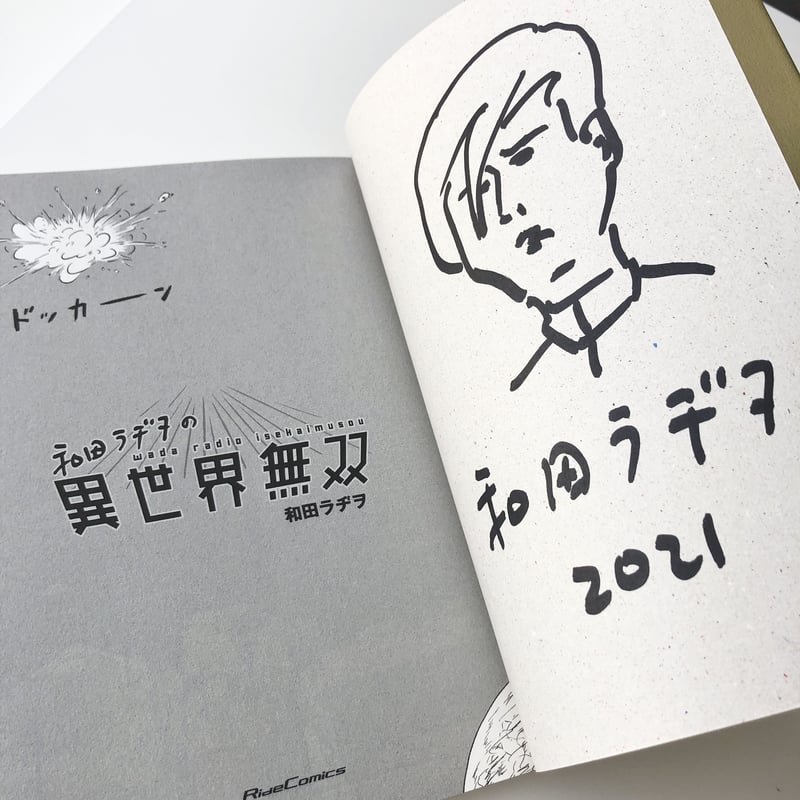 ドッカーン
和田ラヂヲの
wada radio isekaimusou
異世界無双
和田ラヂヲ
RideComics
和田ラヂヲ
2021